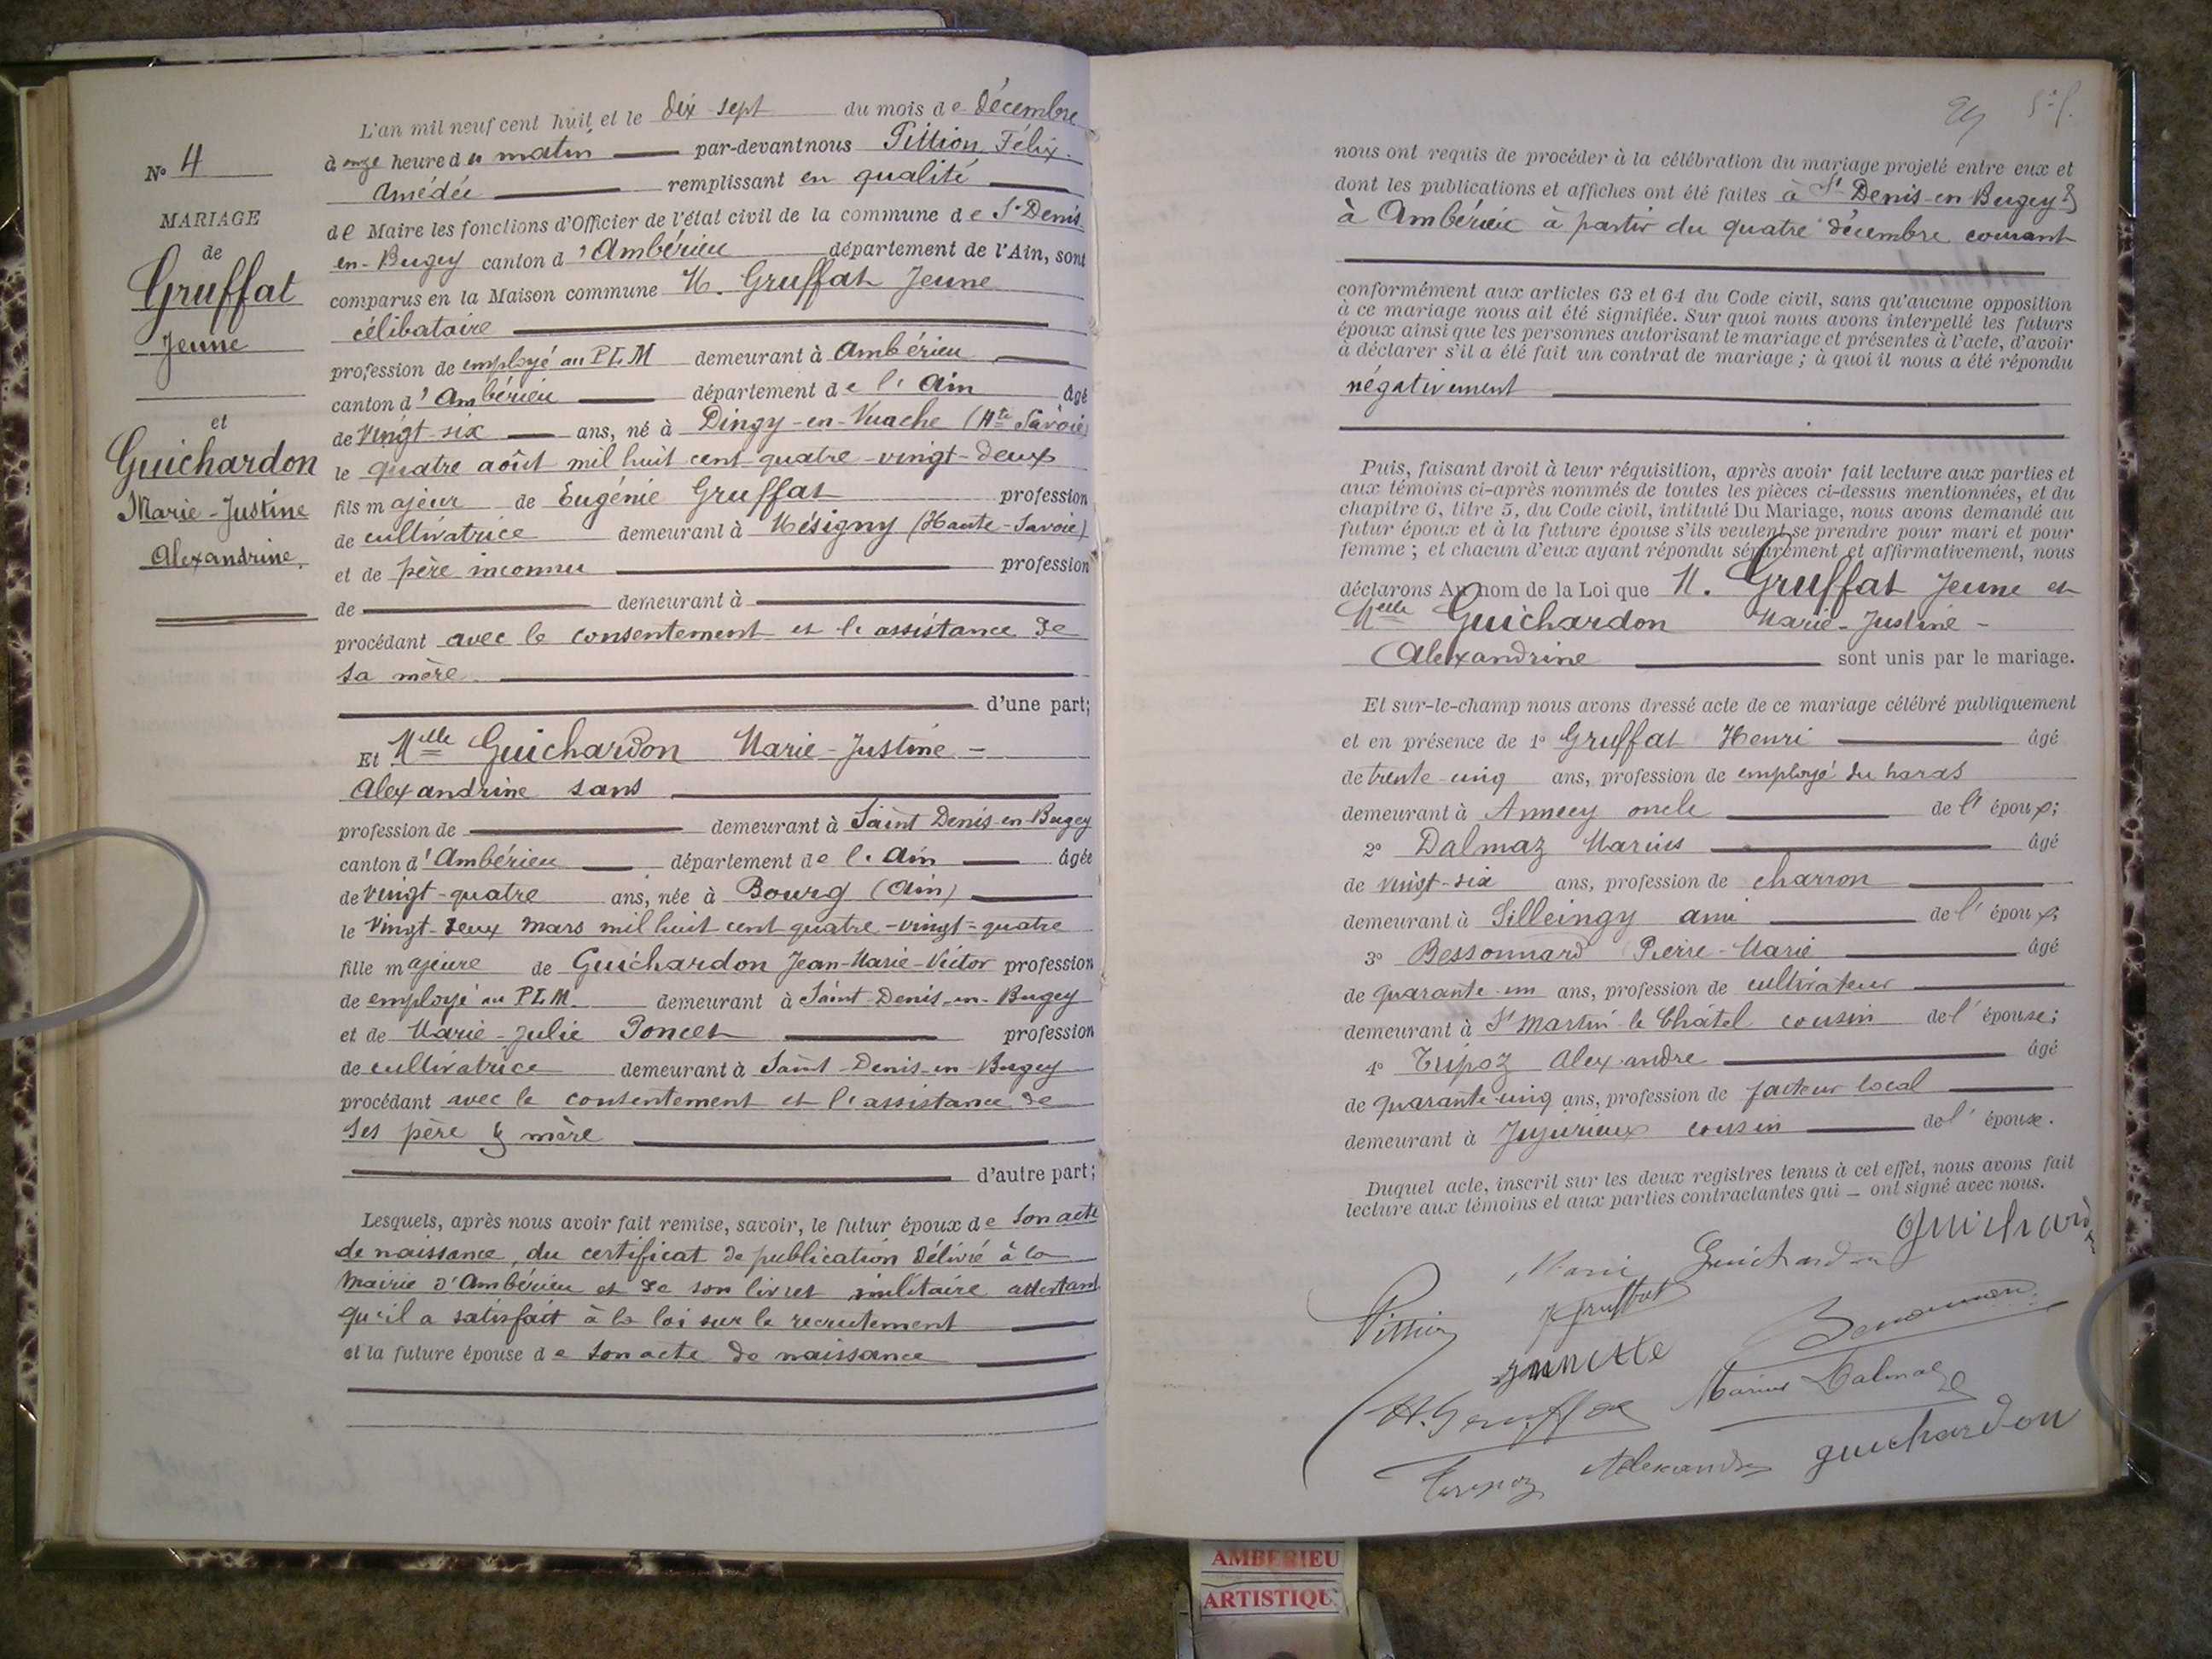 L'an mil neuf cent huit et le dix-sept du mois de décembre
à onze heure du matin par-devant nous Pittion Félix
Amédée remplissant en qualité
de Maire les fonctions d'Officier de l'état civil de la commune de St Denis
en-Bugey canton d'Ambérieu département de l'Ain, sont
comparus en la Maison commune M. Gruffat Jeune
célibataire
profession de employé au PLM demeurant à Ambérieu
canton d'Ambérieu département de l'Ain âgé
de vingt-six ans, né à Dingy-en-Vuache (Hte Savoie)
le quatre août mil huit cent quatre-vingt-deux
fils majeur de Eugénie Gruffat profession
de cultivatrice demeurant à Mésigny (Haute-Savoie)
et de père inconnu profession
de demeurant à
procédant avec le consentement et l'assistance de
sa mère
d'une part;
Et Melle Guichardon Marie-Justine-
Alexandrine sans
profession de demeurant à Saint Denis-en-Bugey
canton d'Ambérieu département de l'Ain âgée
de vingt-quatre ans, née à Bourg (Ain)
le vingt-deux mars mil huit cent quatre-vingt-quatre
fille majeure de Guichardon Jean-Marie-Victor profession
de employé au PLM demeurant à Saint-Denis-en-Bugey
et de Marie-Julie Poncet profession
de cultivatrice demeurant à Saint-Denis-en-Bugey
procédant avec le consentement et l'assistance de
ses père & mère
d'autre part;
Lesquels, après nous avoir fait remise, savoir, le futur époux de son acte
de naissance, du certificat de publication délivré à la
mairie d'Ambérieu et de son livret militaire attestant
qu'il a satisfait à la loi sur le recrutement
et la future épouse de son acte de naissance
No 4
MARIAGE
de
Gruffat
Jeune
et
Guichardon
Marie-Justine
Alexandrine.
nous ont requis de procéder à la célébration du mariage projeté entre eux et
dont les publications et affiches ont été faites à St Denis-en-Bugey &
à Ambérieu à partir du quatre décembre courant
conformément aux articles 63 et 64 du Code civil, sans qu'aucune opposition
à ce mariage nous ait été signifiée. Sur quoi nous avons interpellé les futurs
époux ainsi que les personnes autorisant le mariage et présentes à l'acte, d'avoir
à déclarer s'il a été fait un contrat de mariage; à quoi il nous a été répondu
négativement
Puis, faisant droit à leur réquisition, après avoir fait lecture aux parties et
aux témoins ci-après nommés de toutes les pièces ci-dessus mentionnées, et du
chapitre 6, titre 5, du Code civil, intitulé Du Mariage, nous avons demandé au
futur époux et à la future épouse s'ils veulent se prendre pour mari et pour
femme; et chacun d'eux ayant répondu séparément et affirmativement, nous
déclarons Au nom de la Loi que M. Gruffat Jeune et
Melle Guichardon Marie-Justine-
Alexandrine sont unis par le mariage.
Et sur-le-champ nous avons dressé acte de ce mariage célébré publiquement
et en présence de 1o Gruffat Henri âgé
de trente-cinq ans, profession de employé du haras
demeurant à Annecy oncle de l'époux;
2o Dalmaz Marius âgé
de vingt-six ans, profession de charron
demeurant à Silleingy ami de l'époux;
3o Bessonnard Pierre-Marie âgé
de quarante-un ans, profession de cultivateur
demeurant à St Martin-le Châtel cousin de l'épouse;
4o Tripoz Alexandre âgé
de quarante-cinq ans, profession de facteur local
demeurant à Jujurieux cousin de l'épouse.
Duquel acte, inscrit sur les deux registres tenus à cet effet, nous avons fait
lecture aux témoins et aux parties contractantes qui - ont signé avec nous.
Marie Guichardon
Pittion
J Gruffat
H. Gruffat
Marius Dalmaz
Tripoz Alexandre guichardon
AMBERIEU
ARTISTIQU